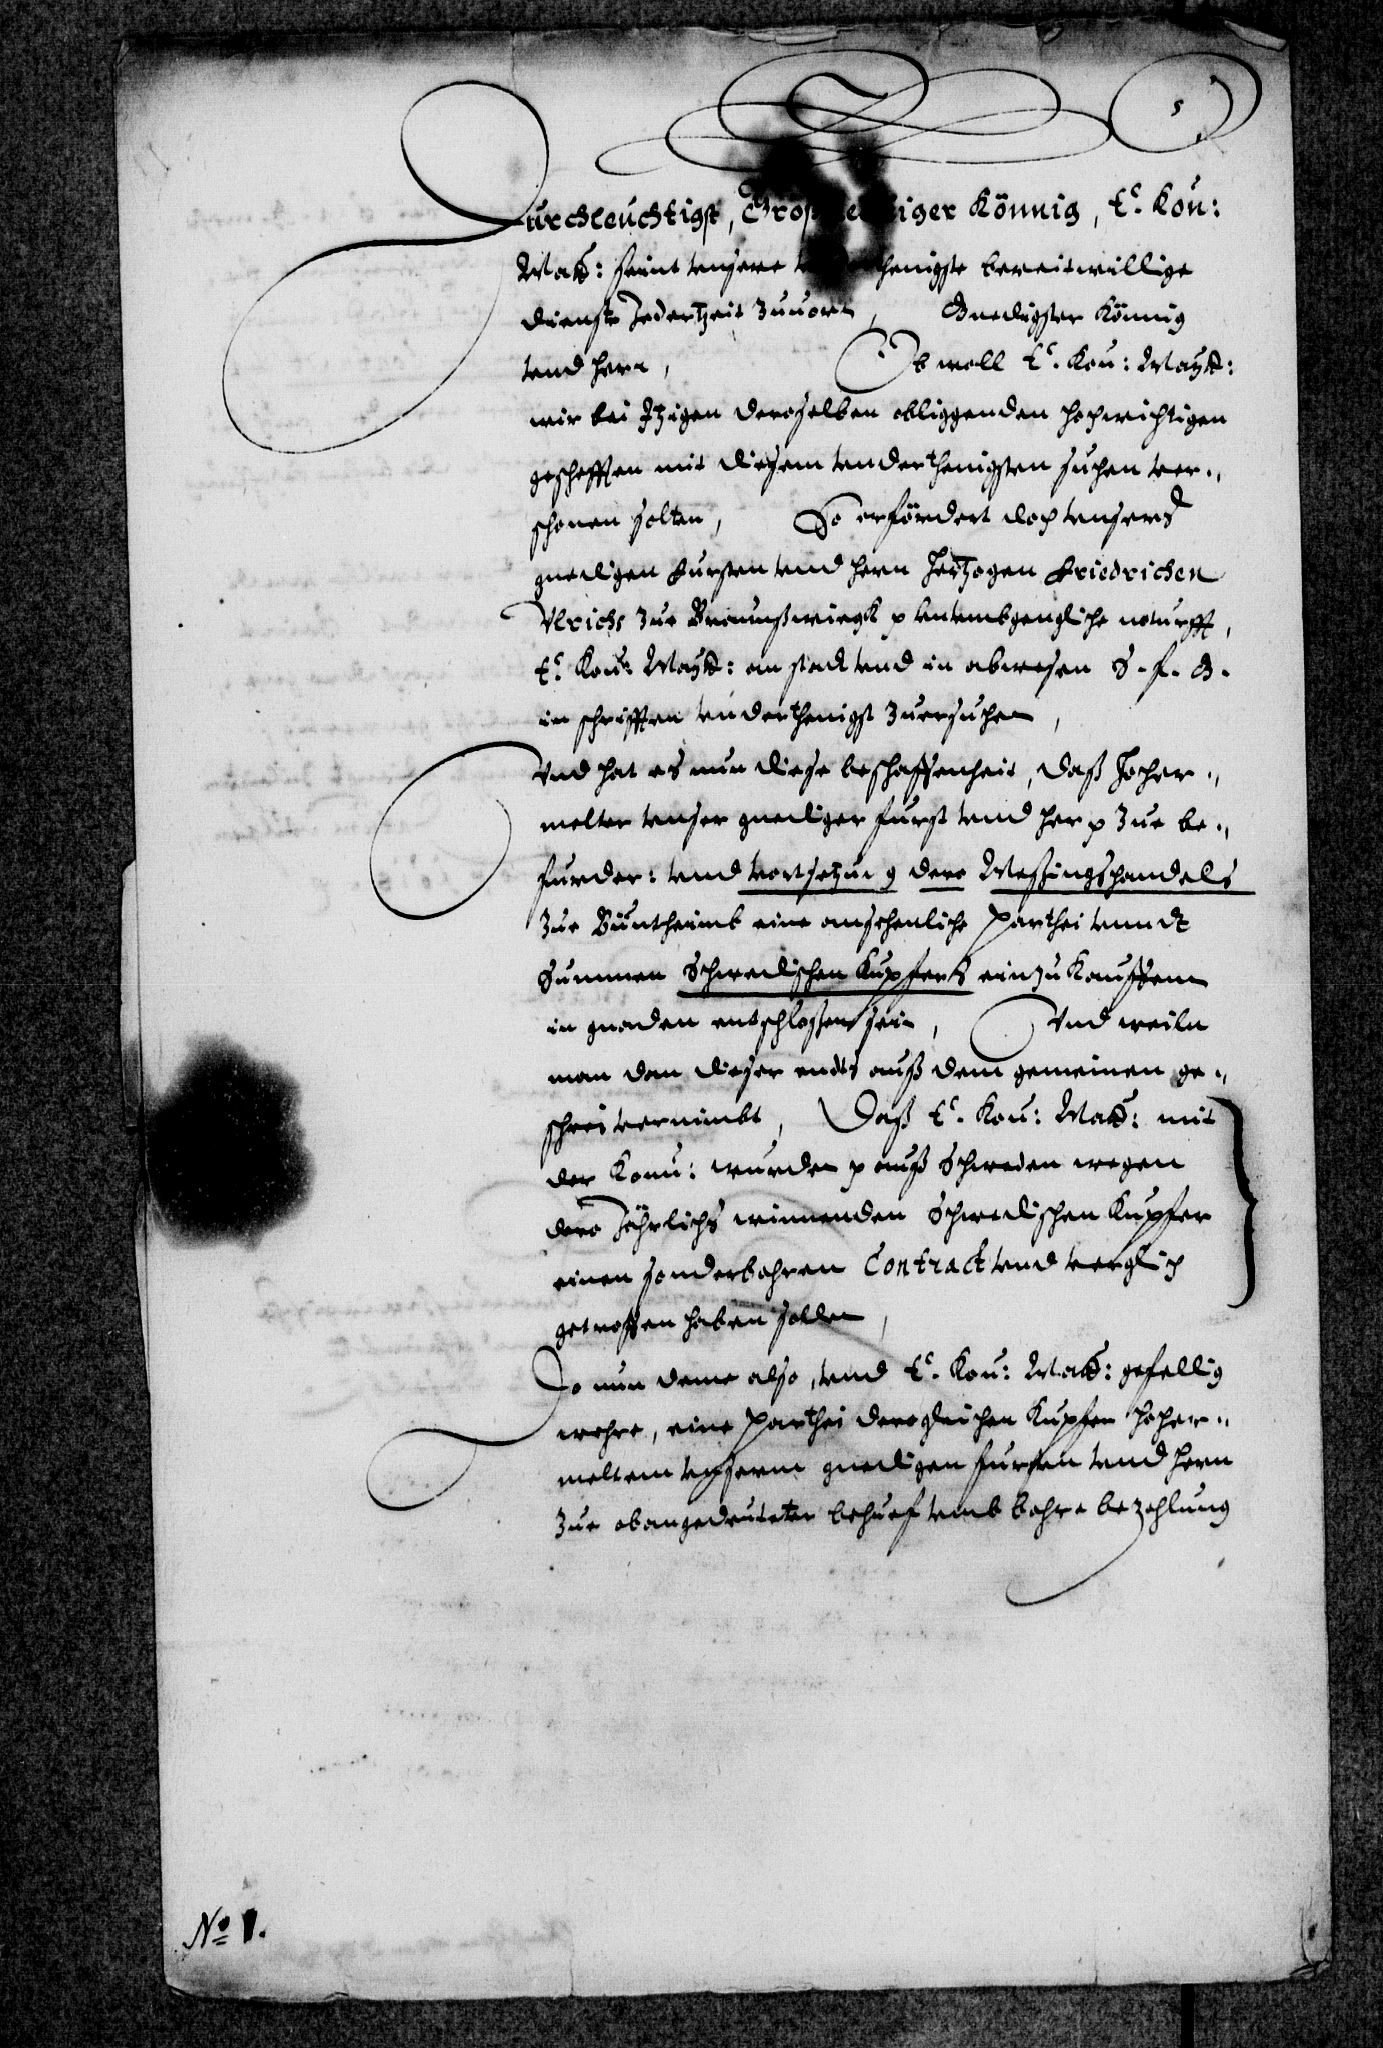 Durchleuchtigst, Großmechtiger Könnig, E. Kön:
Matt: seint unsere underthenigste bereitwillige
dienste Jedertzeit zuuorn, Gnedigster Könnig
und herr, Ob woll E. Kön: Maytt:
wir bei Itzigen deroselben obliggenden hochwichtigen
geschefften mit diesem underthenigsten suchen ver„
schonen solten, So erfördert doch unsers
gnedigen Fursten und hern Hertzogen Friedrichen
Vlrichs zue Braunßwiegk p unumbgengliche noturfft,
E. Kön: Maytt: an stadt und in abwesen S. f. G.
in schrifften underthenigst zuersuchen,
Vnd hat es nun diese beschaffenheit, daß hocher„
melter unser gnediger furst und her p zue be„
furder: und vortsetzung dero Meßingshandels
zue Büntheimb eine ansehenliche Parthei unndt
Summen Schwedischen Kupfers einzukauffenn
in gnaden entschlossen sein, Vnd weiln
man dan dieser endts auß dem gemeinen ge„
schrei vernimbt, Daß E. Kön: Matt: mit
der Könn: wurden p auß Schweden wegen
dero Jährlichs winnenden Schwedischen Kupfer
einen sonderbahren Contract und verglich
getroffen haben sollen,
Do nun deme also, und E. Kön: Matt: gefellig
wehre, eine Parthei derogleichen Kupfer hocher„
meltem unserm gnedigen fursten und hern
zue obangedeuteter behuef umb bahre bezahlung
No 1.